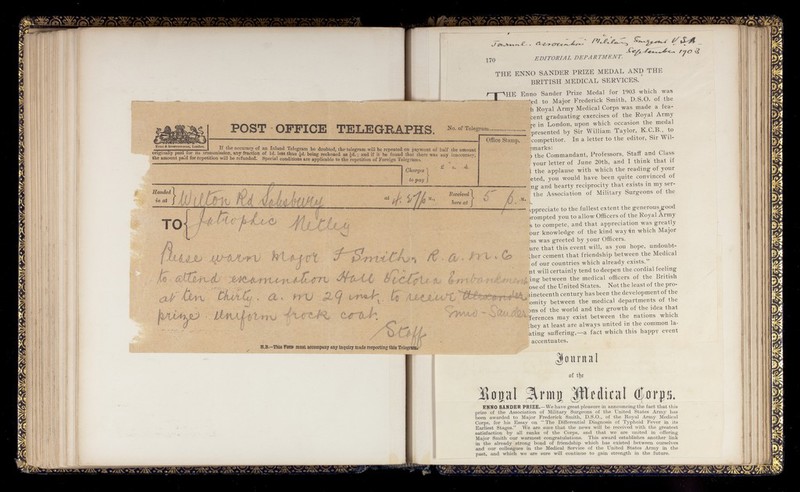 POST OFFICE TELEGRAPHS. No. of Telegram
If the accuracy of an Inland Telegram be doubted, the telegram will be repeated on payment of half the amount
originally paid for its transmission, any fraction of 1d. less than ½d. being reckoned as ½d.; and if it be found that there was any inaccuracy,
the amount paid for repetition will be refunded. Special conditions are applicable to the repetition of Foreign Telegrams.
Office Stamp.
Charges
to pay
Handed
in at
Wilton Rd Salisbury
at
Received
here at
TO
Netley
Please warn Major F Smith, R.a.m.C
to attend examination Hall Victoria Embankment
at ten thirty. a.m 29 inst, to receive Alexander
prize Uniform frock coat. Enno-Sander
Staff
N.B.—This Form must accompany any inquiry made respecting this Telegram.
Journal. Association Military Surgeons U.S.A
September 1903
170 EDITORIAL DEPARTMENT.
THE ENNO SANDER PRIZE MEDAL AND THE
BRITISH MEDICAL SERVICES.
THE Enno Sander Prize Medal for 1903 which was
ed to Major Frederick Smith, D.S.O. of the
Royal Army Medical Corps was made a fea-
cent graduating exercises of the Royal Army
in London, upon which occasion the medal
presented by Sir William Taylor, K.C.B., to
competitor. In a letter to the editor, Sir Wil-
marks:
the Commandant, Professors, Staff and Class
your letter of June 20th, and I think that if
the applause with which the reading of your
eted, you would have been quite convinced of
ng and hearty reciprocity that exists in my ser-
the Association of Military Surgeons of the
ppreciate to the fullest extent the generous good
rompted you to allow Officers of the Royal Army
to compete, and that appreciation was greatly
our knowledge of the kind way in which Major
ss was greeted by your Officers.
ure that this event will, as you hope, undoubt-
her cement that friendship between the Medical
of our countries which already exists."
nt will certainly tend to deepen the cordial feeling
ing between the medical officers of the British
ose of the United States. Not the least of the pro-
ineteenth century has been the development of the
onity between the medical departments of the
ns of the world and the growth of the idea that
ferences may exist between the nations which
hey at least are always united in the common la-
ating suffering,—a fact which this happy event
accentuates.
Journal
of the
Royal Army Medical Corps.
ENNO SANDER PRIZE.—We have great pleasure in announcing the fact that this
prize of the Association of Military Surgeons of the United States Army has
been awarded to Major Frederick Smith, D.S.O., of the Royal Army Medical
Corps, for his Essay on "The Differential Diagnosis of Typhoid Fever in its
Earliest Stages." We are sure that the news will be received with the greatest
satisfaction by all ranks of the Corps, and that we are united in offering
Major Smith our warmest congratulations. This award establishes another link
in the already strong bond of friendship which has existed between ourselves
and our colleagues in the Medical Service of the United States Army in the
past, and which we are sure will continue to gain strength in the future.